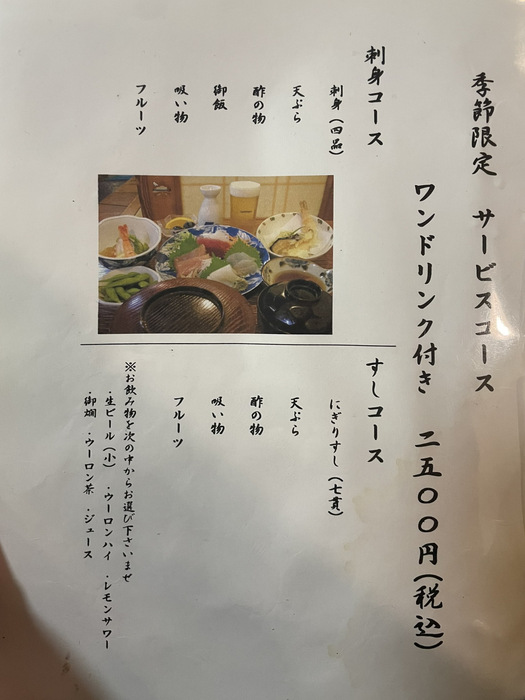 季節限定　サービスコース
ワンドリンク付き　二五〇〇円(税込)
刺身コース
刺身(四品)
天ぷら
酢の物
御飯
吸い物
フルーツ
すしコース
にぎりすし(七貫)
天ぷら
酢の物
吸い物
フルーツ
※お飲み物を次の中からお選び下さいませ
・生ビール(小)　・ウーロンハイ　・レモンサワー
・御燗　・ウーロン茶　・ジュース